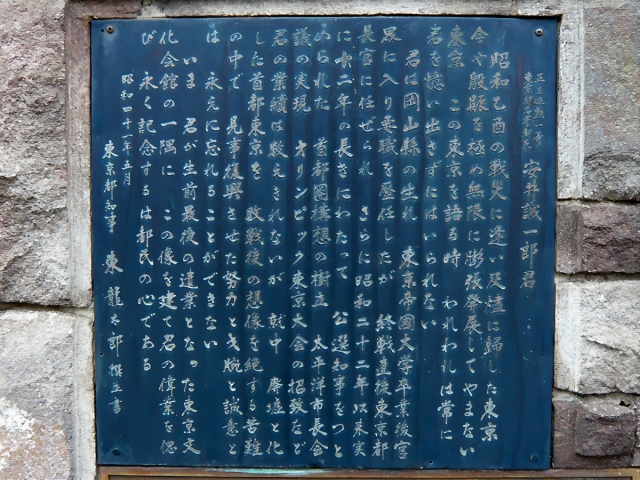 正三位勲一等
東京都名誉都民 安井誠一郎君
昭和乙酉の戦災に逢い灰燼に歸した東京
今や殷賑を極め無限に膨張發展してやまない
東京 この東京を語る時 われわれは常に
君を憶い出さずにはいられない
君は岡山縣の生れ 東京帝國大学卒業後官
界に入り要職を歴任したが 終戦直後東京都
長官に任ぜられ さらに昭和二十二年以来実
に十二年の長きにわたって 公選知事をつと
められた 首都圏構想の樹立 太平洋市長会
議の実現 オリンピック東京大会の招致など
君の業績は数えきれないが 就中 廃墟と化
した首都東京を 敗戦後の想像を絶する苦難
の中で 見事復興させた努力と手腕と誠意と
は 永えに忘れることができない
いま 君が生前最後の遺業となった東京文
化会館の一隅に この像を建て君の偉業を偲
び 永く記念するは都民の心である
昭和四十年五月
東京都知事 東 龍太郎 撰並書